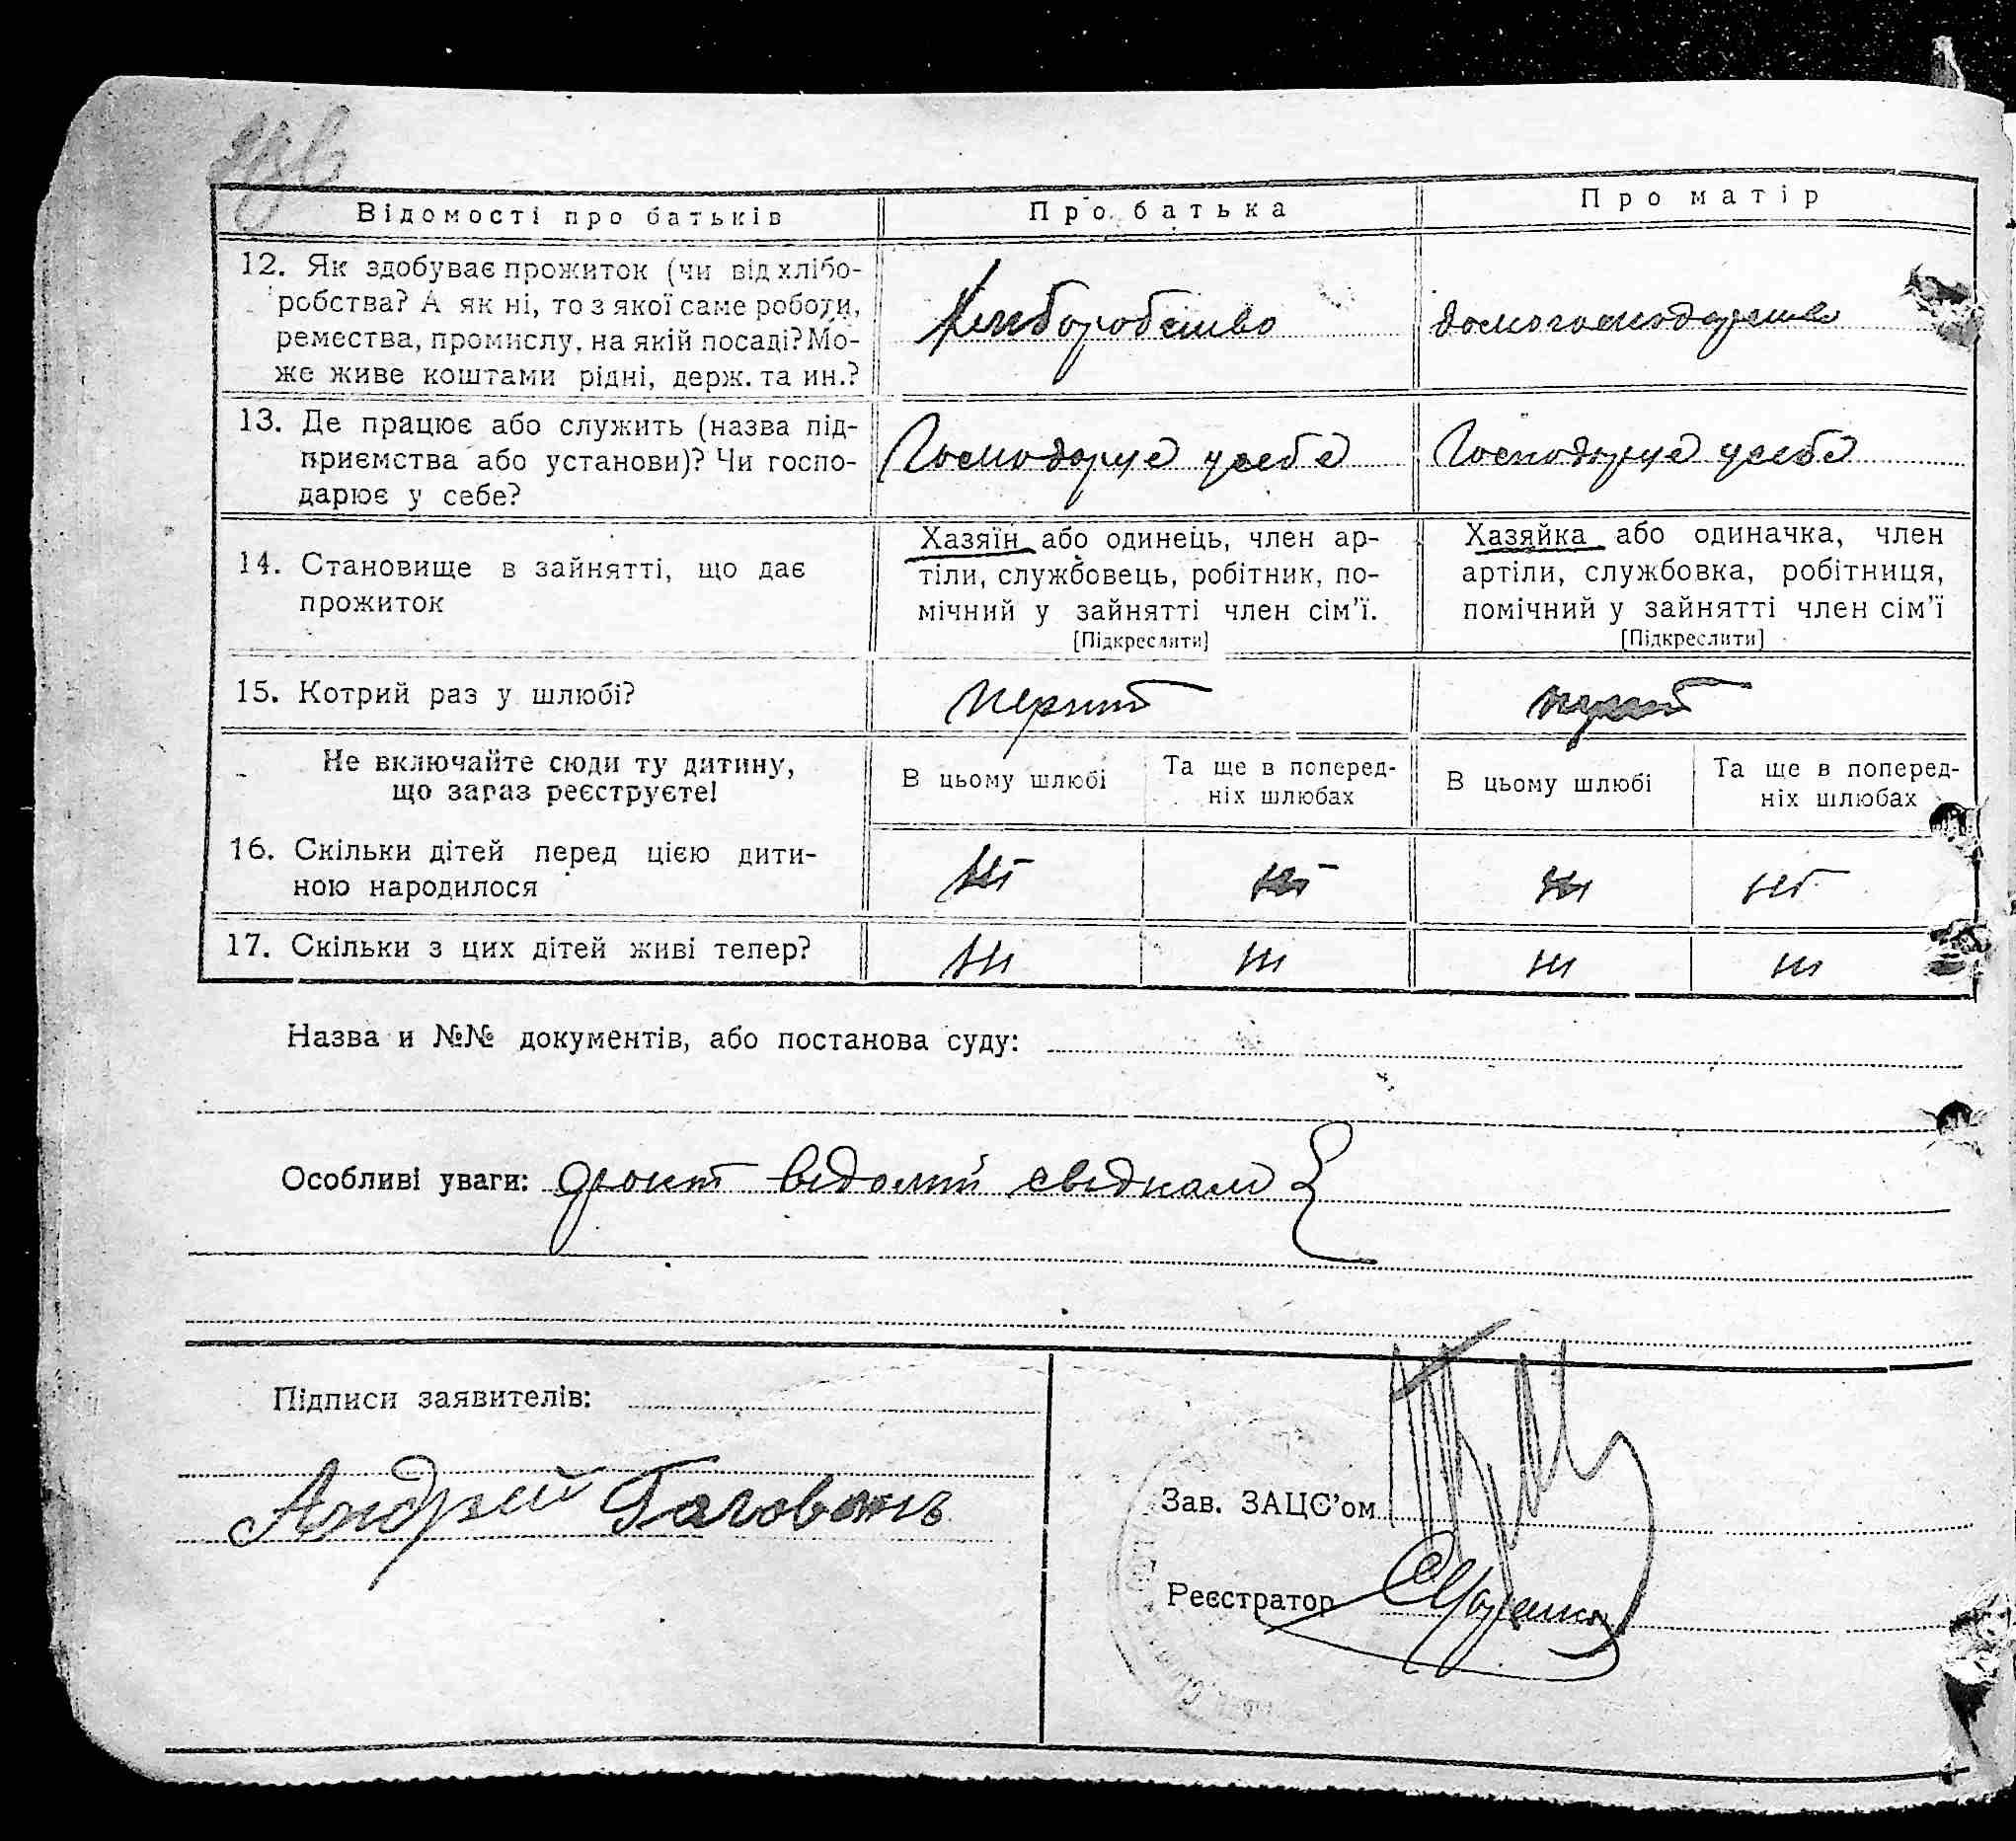 Відомості про батьків
Про батька
Про матір
12. Як здобуває прожиток (чи від хлібо-
робства? А як ні, то з якої саме роботи,
ремества, промислу, на якій посаді? Мо-
же живе коштами рідні, держ. та ин.?
Хлиборобство
домогосподарство
13. Де працює або служить (назва під-
приємства або установи)? Чи госпо-
дарює у себе?
Господарує у себе
Господарує у себе
14. Становище в зайнятті, що дає
прожиток
Хазяїн або одинець, член ар-
тіли, службовець, робітник, по-
мічний у зайнятті член сім'ї.
[Підкреслити]
Хазяйка або одиначка, член
артіли, службовка, робітниця,
помічний у зайнятті член сім'ї
[Підкреслити]
15. Котрий раз у шлюбі?
перший
перший
Не включайте сюди ту дитину,
що зараз реєструєте!
В цьому шлюбі
Та ще в поперед-
ніх шлюбах
В цьому шлюбі
Та ще в поперед-
ніх шлюбах
16. Скільки дітей перед цією дити-
ною народилося
17. Скільки з цих дітей живі тепер?
Назва и №№ документів, або постанова суду:
Особливі уваги: відомий свідкам
Підписи заявителів:
Андрей
Зав. ЗАЦС'ом
Реєстратор